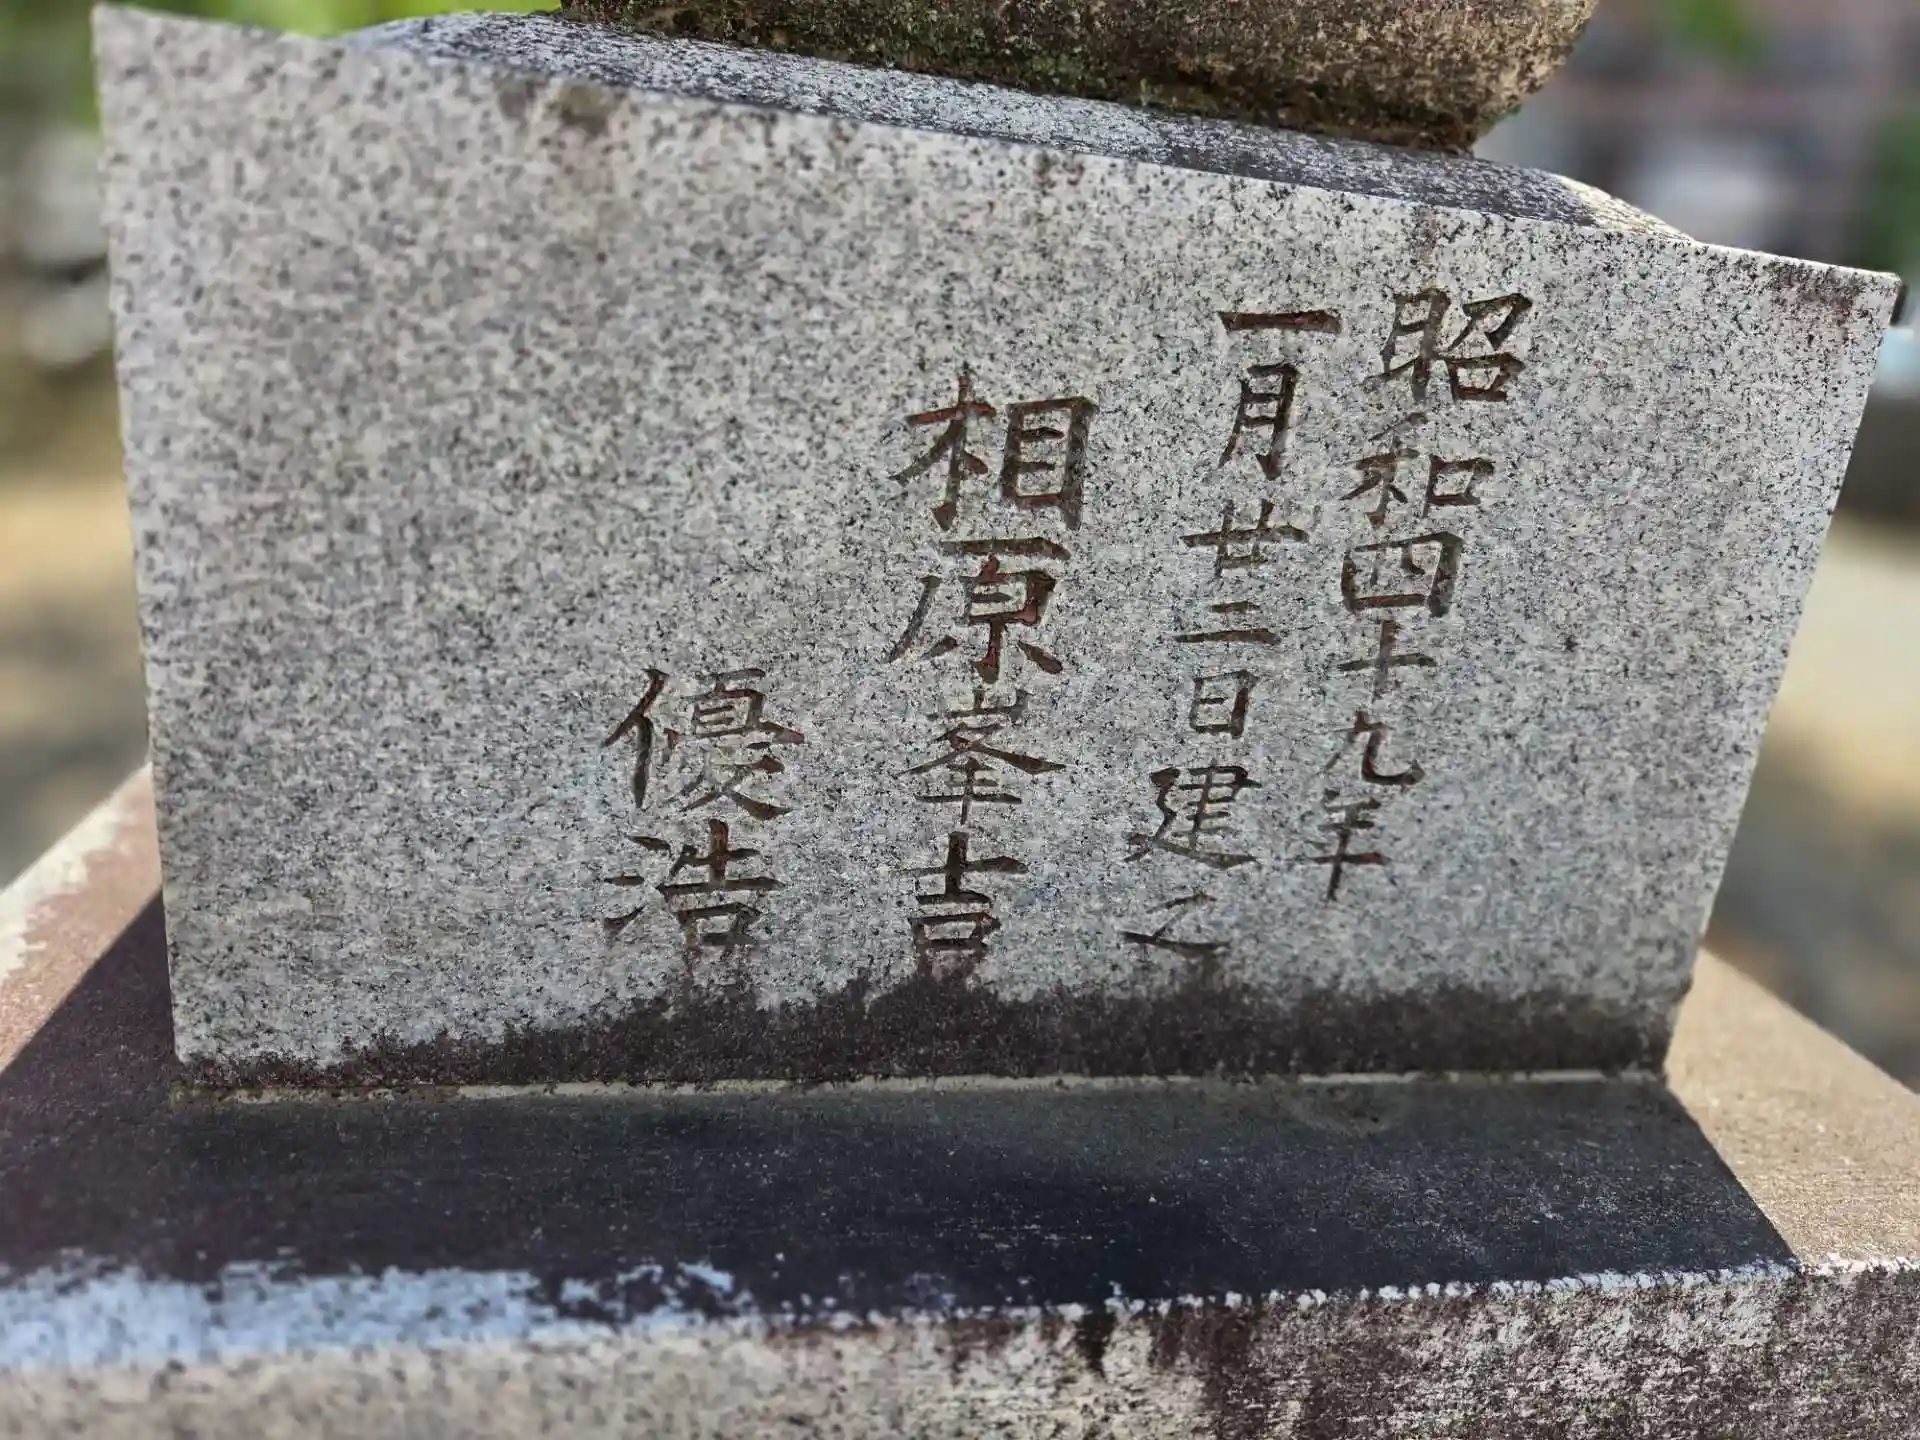 昭和四十九年
一月廿二日建之
相原峯吉
優浩